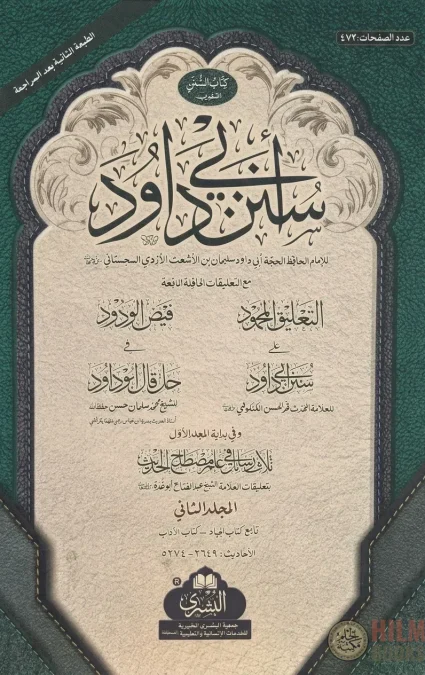 عدد الصفحات: ٤٧٢
الطبعة الثانية بعد المراجعة
كتاب السنن
سنن أبي داود
للإمام الحافظ الحجة أبي داود سليمان بن الأشعث الأزدي السجستاني
مع التعليقات الحافلة النافعة
التعليق المحمود فيض الودود
على في
سنن أبي داود حل قال أبو داود
للعلامة المحدث فخر الحسن الكنكوهي للشيخ محمد سلمان حسن حفظه الله
وفي بداية المجلد الأول
ثلاث رسائل في علم مصطلح الحديث
بتعليقات العلامة الشيخ عبد الفتاح أبو غدة
المجلد الثاني
تابع كتاب الجهاد - كتاب الآداب
الأحاديث: ٢٦٤٩-٥٢٧٤
البشرى
®
جمعية البشرى الخيرية
للخدمات الإنسانية والتعليمية